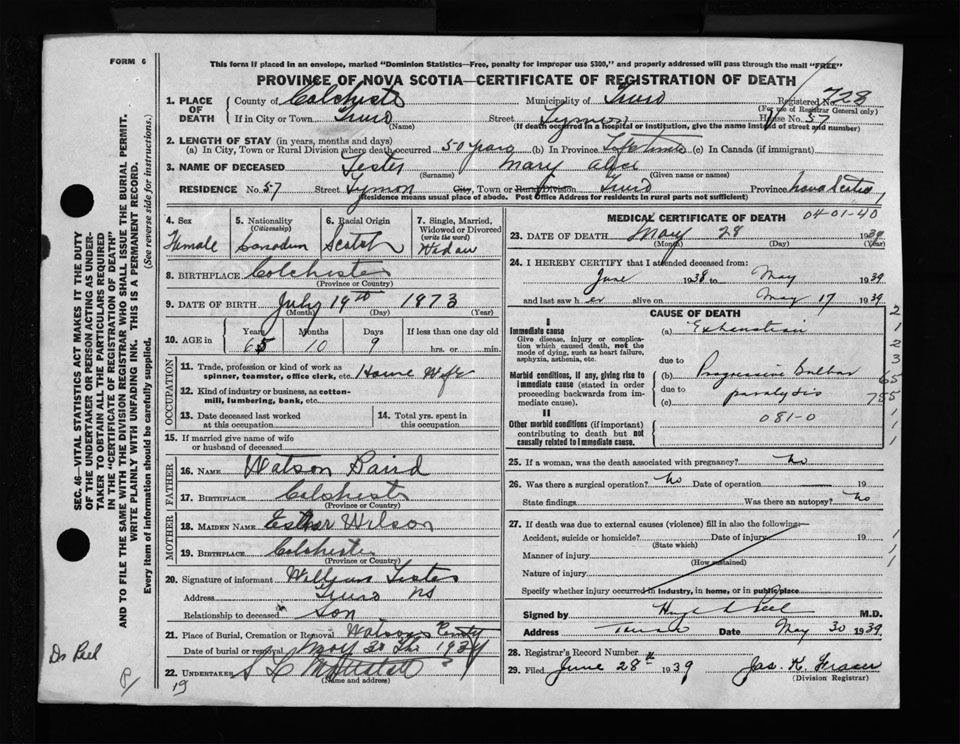 FORM 6
This form if placed in an envelope, marked "Dominion Statistics—Free, penalty for improper use $300," and properly addressed will pass through the mail "FREE"
PROVINCE OF NOVA SCOTIA—CERTIFICATE OF REGISTRATION OF DEATH
1. PLACE OF DEATH
County of Colchester Municipality of Truro Registered No. 728
(For use of Registrar General only)
If in City or Town Truro Street Lyman House No. 57
(Name) (If death occurred in a hospital or institution, give the name instead of street and number)
2. LENGTH OF STAY (in years, months and days)
(a) In City, Town or Rural Division where death occurred 50 years (b) In Province Life time (c) In Canada (if immigrant)
3. NAME OF DECEASED Lester Mary Alice
(Surname) (Given name or names)
RESIDENCE No. 57 Street Lyman City, Town or Rural Division Truro Province Nova Scotia
(Residence means usual place of abode. Post Office Address for residents in rural parts not sufficient)
4. Sex
Female
5. Nationality
(Citizenship)
Canadian
6. Racial Origin
Scotch
7. Single, Married, Widowed or Divorced
(write the word)
Widow
8. BIRTHPLACE Colchester
(Province or Country)
9. DATE OF BIRTH July 19th 1873
(Month) (Day) (Year)
10. AGE in Years Months Days If less than one day old
65 10 9 hrs. or min.
OCCUPATION
11. Trade, profession or kind of work as spinner, teamster, office clerk, etc. House Wife
12. Kind of industry or business, as cotton-mill, lumbering, bank, etc.
13. Date deceased last worked at this occupation
14. Total yrs. spent in this occupation
15. If married give name of wife or husband of deceased
FATHER
16. NAME Watson Baird
17. BIRTHPLACE Colchester
MOTHER
18. MAIDEN NAME Esther Wilson
19. BIRTHPLACE Colchester
(Province or Country)
20. Signature of informant William Lester
Address Truro NS
Relationship to deceased Son
21. Place of Burial, Cremation or Removal Watson
Date of burial or removal May 30 1939
22. UNDERTAKER
(Name and address)
MEDICAL CERTIFICATE OF DEATH
04-01-40
23. DATE OF DEATH May 28 1939
(Month) (Day) (Year)
24. I HEREBY CERTIFY that I attended deceased from:
June 1938 to May 1939
and last saw her alive on May 17 1939
CAUSE OF DEATH
I
Immediate cause
Give disease, injury or complication which caused death, not the mode of dying, such as heart failure, asphyxia, asthenia, etc.
(a) Exhaustion
due to
Morbid conditions, if any, giving rise to immediate cause (stated in order proceeding backwards from immediate cause).
(b) Progressive Bulbar
due to
(c) paralysis
II
Other morbid conditions (if important) contributing to death but not causally related to immediate cause.
081-0
25. If a woman, was the death associated with pregnancy? No
26. Was there a surgical operation? No Date of operation 19
State findings Was there an autopsy? No
27. If death was due to external causes (violence) fill in also the following:—
Accident, suicide or homicide? Date of injury 19
(State which)
Manner of injury
(How sustained)
Nature of injury
Specify whether injury occurred in industry, in home, or in public place
Signed by Hugh Peel M.D.
Address Truro Date May 30 1939
28. Registrar's Record Number
29. Filed June 28th 1939 Jas. K. Fraser
(Division Registrar)
SEC. 46—VITAL STATISTICS ACT MAKES IT THE DUTY OF THE UNDERTAKER OR PERSON ACTING AS UNDERTAKER TO OBTAIN ALL THE PARTICULARS REQUIRED IN THE "CERTIFICATE OF REGISTRATION OF DEATH" AND TO FILE THE SAME WITH THE DIVISION REGISTRAR WHO SHALL ISSUE THE BURIAL PERMIT.
WRITE PLAINLY WITH UNFADING INK. THIS IS A PERMANENT RECORD.
Every item of information should be carefully supplied. (See reverse side for instructions.)
Dr Peel
19